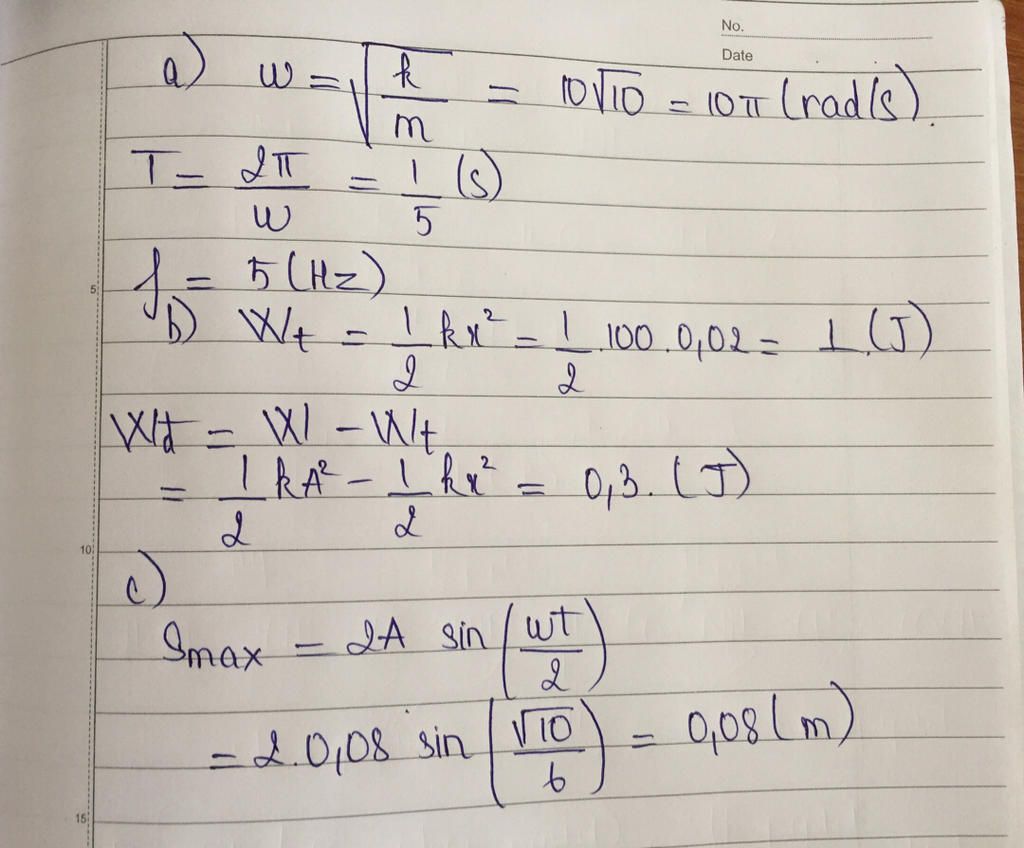 No.
Date
a) w = √(k/m) = 10√10 = 10π (rad/s).
T = 2π/w = 1/5 (s)
5
f = 5 (Hz)
b) Wt = 1/2 kx² = 1/2 .100.0,02 = 1.(J)
Wđ = W - Wt
= 1/2 kA² - 1/2 kx² = 0,3. (J)
10
c)
Smax = 2A sin (wt/2)
= 2.0,08 sin (√10/6) = 0,08 (m)
15